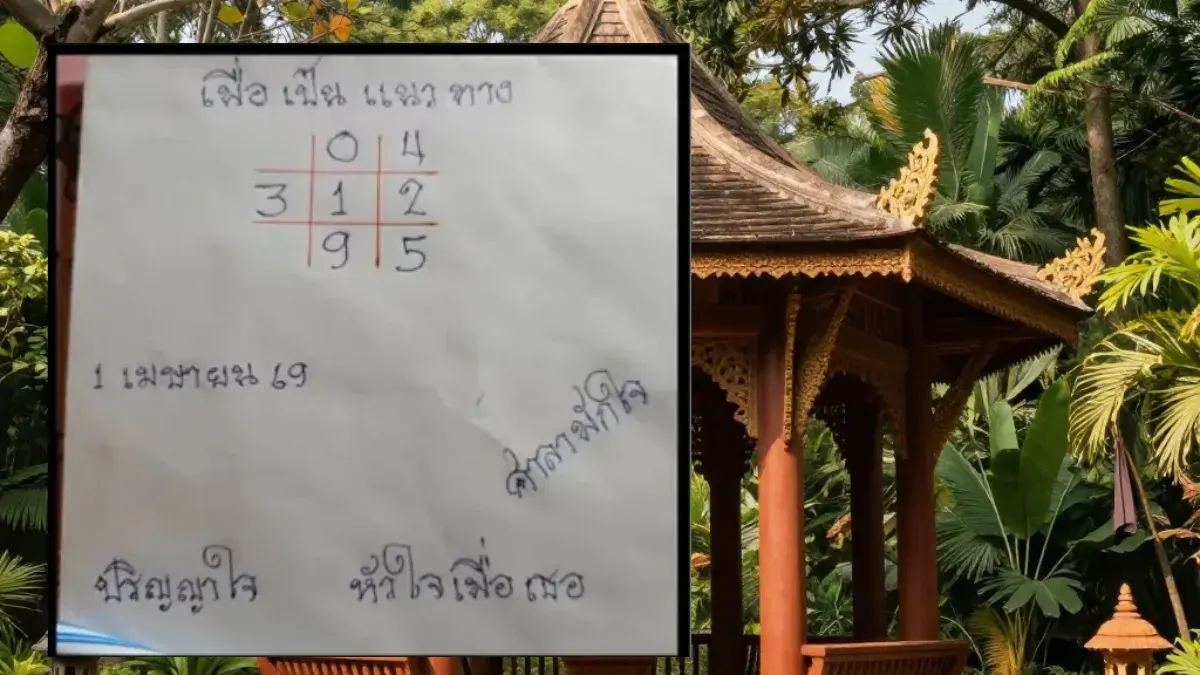 เพื่อ เป็น แนว ทาง
0 4
3 1 2
9 5
1 เมษายน 69
ศาลาพักใจ
ปริญญาใจ
หัวใจเพื่อเธอ